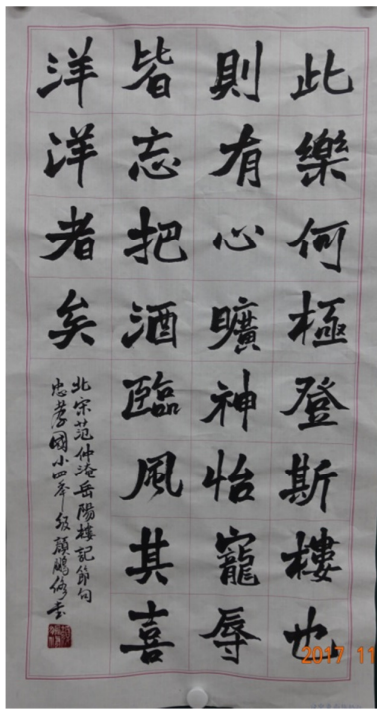 此樂何極登斯樓也
則有心曠神怡寵辱
皆忘把酒臨風其喜
洋洋者矣
北宋范仲淹岳陽樓記節句
忠孝國小四年級顏鵬修書
2017 11